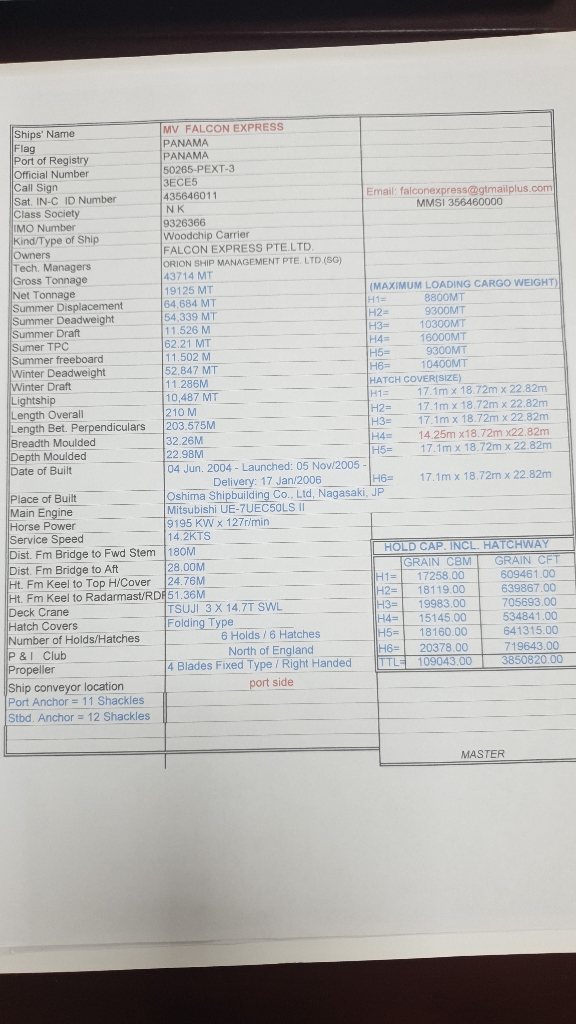 Ships' Name MV FALCON EXPRESS
Flag PANAMA
Port of Registry PANAMA
Official Number 50265-PEXT-3
Call Sign 3ECE5
Sat. IN-C ID Number 435646011
Email: falconexpress@gtmailplus.com
Class Society N K
MMSI 356460000
IMO Number 9326366
Kind/Type of Ship Woodchip Carrier
Owners FALCON EXPRESS PTE.LTD.
Tech. Managers ORION SHIP MANAGEMENT PTE. LTD.(SG)
Gross Tonnage 43714 MT
Net Tonnage 19125 MT
Summer Displacement 64,684 MT
Summer Deadweight 54,339 MT
Summer Draft 11.526 M
Sumer TPC 62.21 MT
Summer freeboard 11.502 M
Winter Deadweight 52,847 MT
Winter Draft 11.286M
Lightship 10,487 MT
Length Overall 210 M
Length Bet. Perpendiculars 203.575M
Breadth Moulded 32.26M
Depth Moulded 22.98M
Date of Built 04 Jun. 2004 - Launched: 05 Nov/2005 -
Delivery: 17 Jan/2006
Place of Built Oshima Shipbuilding Co., Ltd, Nagasaki, JP
Main Engine Mitsubishi UE-7UEC50LS II
Horse Power 9195 KW x 127r/min
Service Speed 14.2KTS
Dist. Fm Bridge to Fwd Stem 180M
Dist. Fm Bridge to Aft 28.00M
Ht. Fm Keel to Top H/Cover 24.76M
Ht. Fm Keel to Radarmast/RDF 51.36M
Deck Crane TSUJI 3 X 14.7T SWL
Hatch Covers Folding Type
Number of Holds/Hatches 6 Holds / 6 Hatches
P & I Club North of England
Propeller 4 Blades Fixed Type / Right Handed
Ship conveyor location port side
Port Anchor = 11 Shackles
Stbd. Anchor = 12 Shackles
(MAXIMUM LOADING CARGO WEIGHT)
H1= 8800MT
H2= 9300MT
H3= 10300MT
H4= 16000MT
H5= 9300MT
H6= 10400MT
HATCH COVER(SIZE)
H1= 17.1m x 18.72m x 22.82m
H2= 17.1m x 18.72m x 22.82m
H3= 17.1m x 18.72m x 22.82m
H4= 14.25m x18.72m x22.82m
H5= 17.1m x 18.72m x 22.82m
H6= 17.1m x 18.72m x 22.82m
HOLD CAP. INCL. HATCHWAY
GRAIN CBM GRAIN CFT
H1= 17258.00 609461.00
H2= 18119.00 639867.00
H3= 19983.00 705693.00
H4= 15145.00 534841.00
H5= 18160.00 641315.00
H6= 20378.00 719643.00
TTL= 109043.00 3850820.00
MASTER